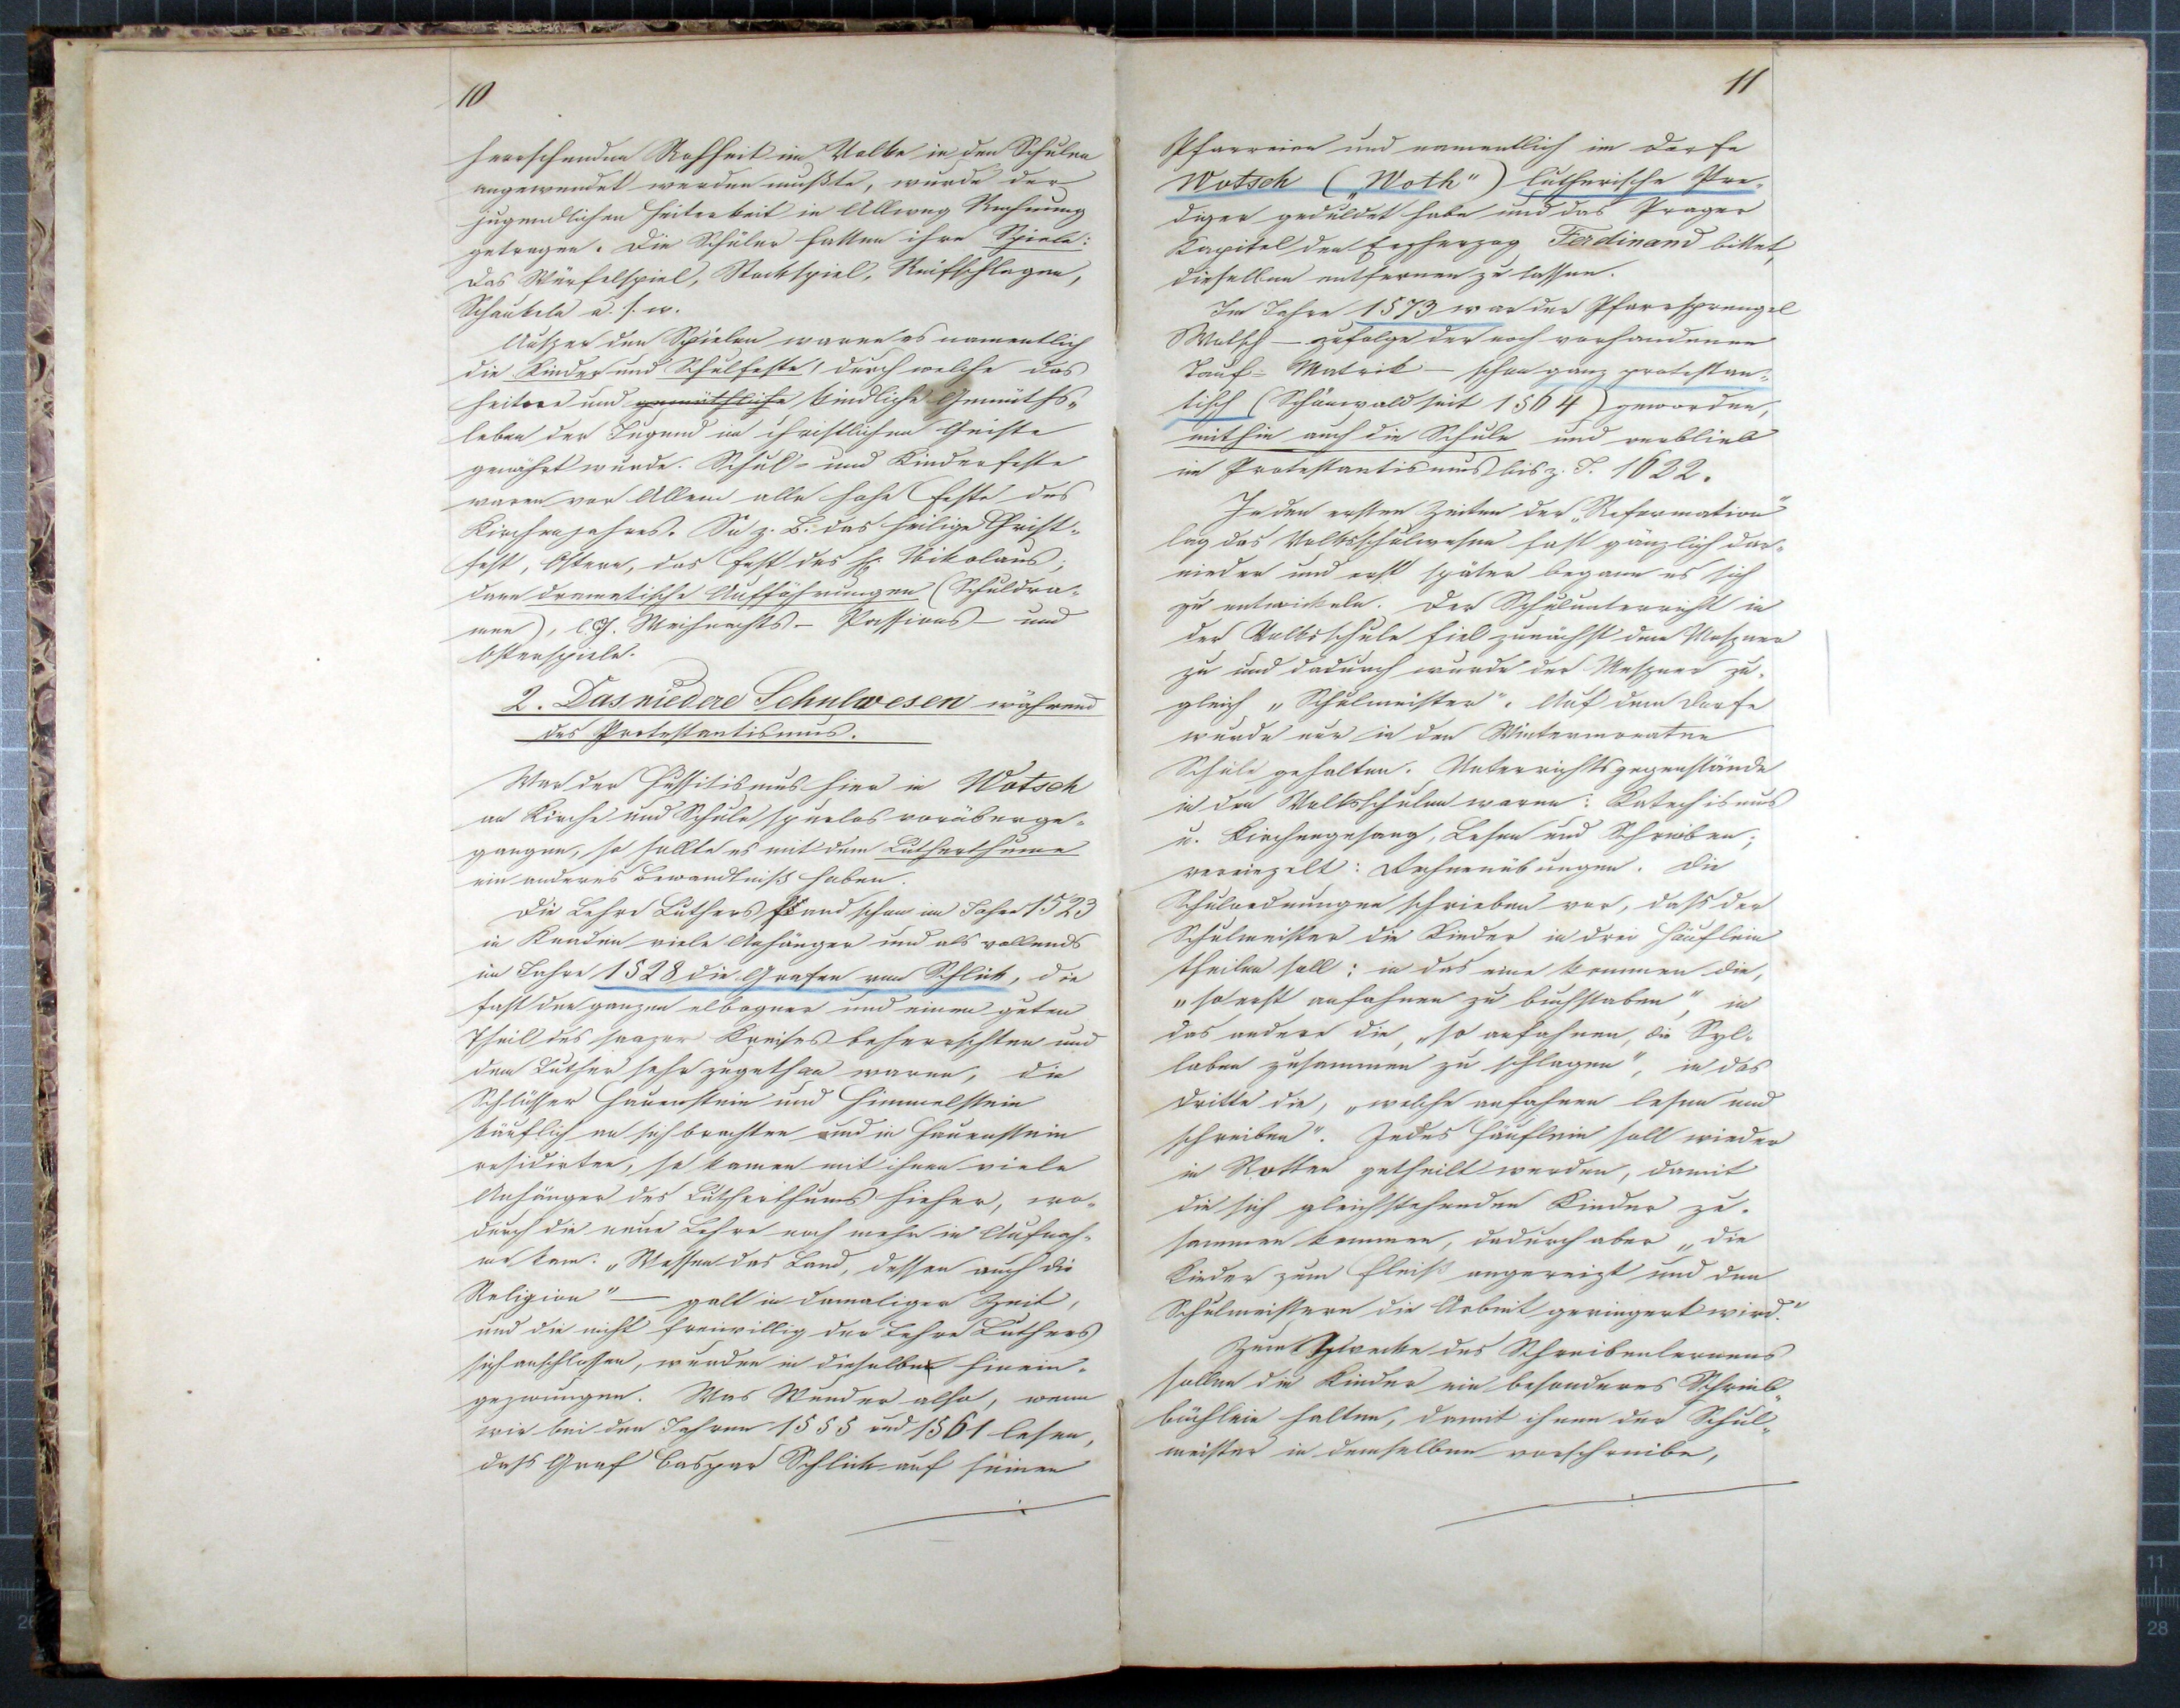 10
herrschenden Rohheit im Volke in den Schulen
angewendet werden mußte, wurde der
jugendlichen Heiterkeit in Allweg Rechnung
getragen. Die Schüler hatten ihre Spiele:
das Würfelspiel, Stockspiel, Reifschlagen,
Schaukeln u. s. w.
Außer den Spielen waren es namentlich
die Kinder und Schulfeste, durch welche das
heitere und gemüthliche kindliche Gemüths-
leben der Jugend im christlichen Geiste
genährt wurde. Schul- und Kinderfeste
waren vor Allem alle hohe Feste des
Kirchenjahres. So z. B. das heilige Christ-
fest, Ostern, das Fest des hl. Nikolaus;
dann dramatische Aufführungen (Schuldra-
men), Weihnachts- Passions- und
Osterspiele.
2. Das niedere Schulwesen während
des Protestantismus.
War der Hussitismus hier in Wotsch
an Kirche und Schule spurlos vorüberge-
gangen, so sollte es mit dem Lutherthume
ein anderes Bewandtniß haben.
Die Lehre Luthers fand schon im Jahre 1523
in Kaaden viele Anhänger und als vollends
im Jahre 1528 die Grafen von Schlick, die
fast den ganzen elbogner und einen guten
Theil des saazer Kreises beherrschten und
dem Luther sehr zugethan waren, die
Schlösser Hauenstein und Himmelstein
käuflich an sich brachten und in Hauenstein
residirten, so kamen mit ihnen viele
Anhänger des Lutherthums hieher, wo-
durch die neue Lehre noch mehr in Aufnah-
me kam. „Wessen das Land, dessen auch die
Religion" — galt in damaliger Zeit,
und die nicht freiwillig der Lehre Luthers
sich anschlossen, wurden in dieselbe hinein-
gezwungen. Was Wunder also, wenn
wir bei den Jahren 1555 und 1561 lesen,
daß Graf Caspar Schlick auf seinen
11
Pfarreien und namentlich im Dorfe
Wotsch („Woth") lutherische Pre-
diger geduldet habe und das Prager
Kapitel den Erzherzog Ferdinand bittet,
dieselben entfernen zu lassen.
Im Jahre 1573 war der Pfarrsprengel
Wotsch — zufolge der noch vorhandenen
Tauf- Matrik — schon ganz protestan-
tisch (Schönwald seit 1564) geworden,
mithin auch die Schule und verblieb
im Protestantismus bis z. J. 1622.
In den ersten Zeiten der „Reformation"
lag das Volksschulwesen fast gänzlich dar-
nieder und erst später begann es sich
zu entwickeln. Der Schulunterricht in
der Volksschule fiel zunächst dem Meszner
zu und dadurch wurde der Meszner zu-
gleich „Schulmeister". Auf dem Dorfe
wurde nur in den Wintermonaten
Schule gehalten. Unterrichtsgegenstände
in den Volksschulen waren: Katechismus
u. Kirchengesang, Lesen und Schreiben;
vereinzelt: Rechenübungen. Die
Schulordnungen schrieben vor, daß der
Schulmeister die Kinder in drei Häuflein
theilen soll: in das eine kommen die,
„so erst anfahnen zu buchstaben", in
das andere die, „so anfahnen, die Syl-
laben zusammen zu schlagen", in das
dritte die, „welche anfahnen lesen und
schreiben". Jedes Häuflein soll wieder
in Rotten getheilt werden, damit
die sich gleichstehenden Kinder zu-
sammen kommen, dadurch aber „die
Kinder zum Fleiß angereizt und den
Schulmeistern die Arbeit geringert wird."
Zum Zwecke des Schreibenlernens
sollen die Kinder ein besonderes Schreib-
büchlein halten, damit ihnen der Schul-
meister in demselben vorschreibe,